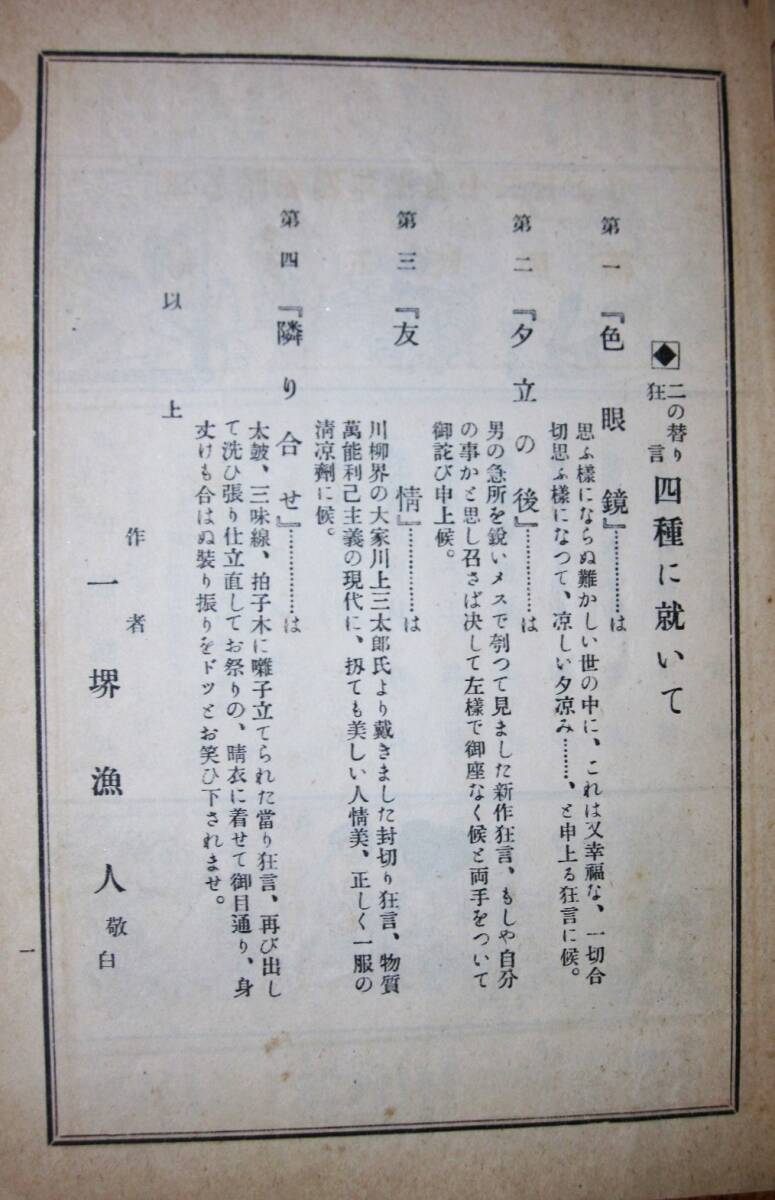 ◆二の替り狂言四種に就いて
第一『色眼鏡』……………は
思ふ樣にならぬ難かしい世の中に、これは又幸福な、一切合
切思ふ樣になつて、凉しい夕凉み………、と申上る狂言に候。
第二『夕立の後』……………は
男の急所を銳いメスで刳つて見ました新作狂言、もしや自分
の事かと思し召さば決して左樣で御座なく候と両手をついて
御詫び申上候。
第三『友情』……………は
川柳界の大家川上三太郎氏より戴きました封切り狂言、物質
萬能利己主義の現代に、扨ても美しい人情美、正しく一服の
清凉劑に候。
第四『隣り合せ』……………は
太皷、三味線、拍子木に囃子立てられた當り狂言、再び出し
て洗ひ張り仕立直してお祭りの、晴衣に着せて御目通り、身
丈けも合はぬ裝り振りをドツとお笑ひ下されませ。
以上
作者
一堺漁人敬白
一